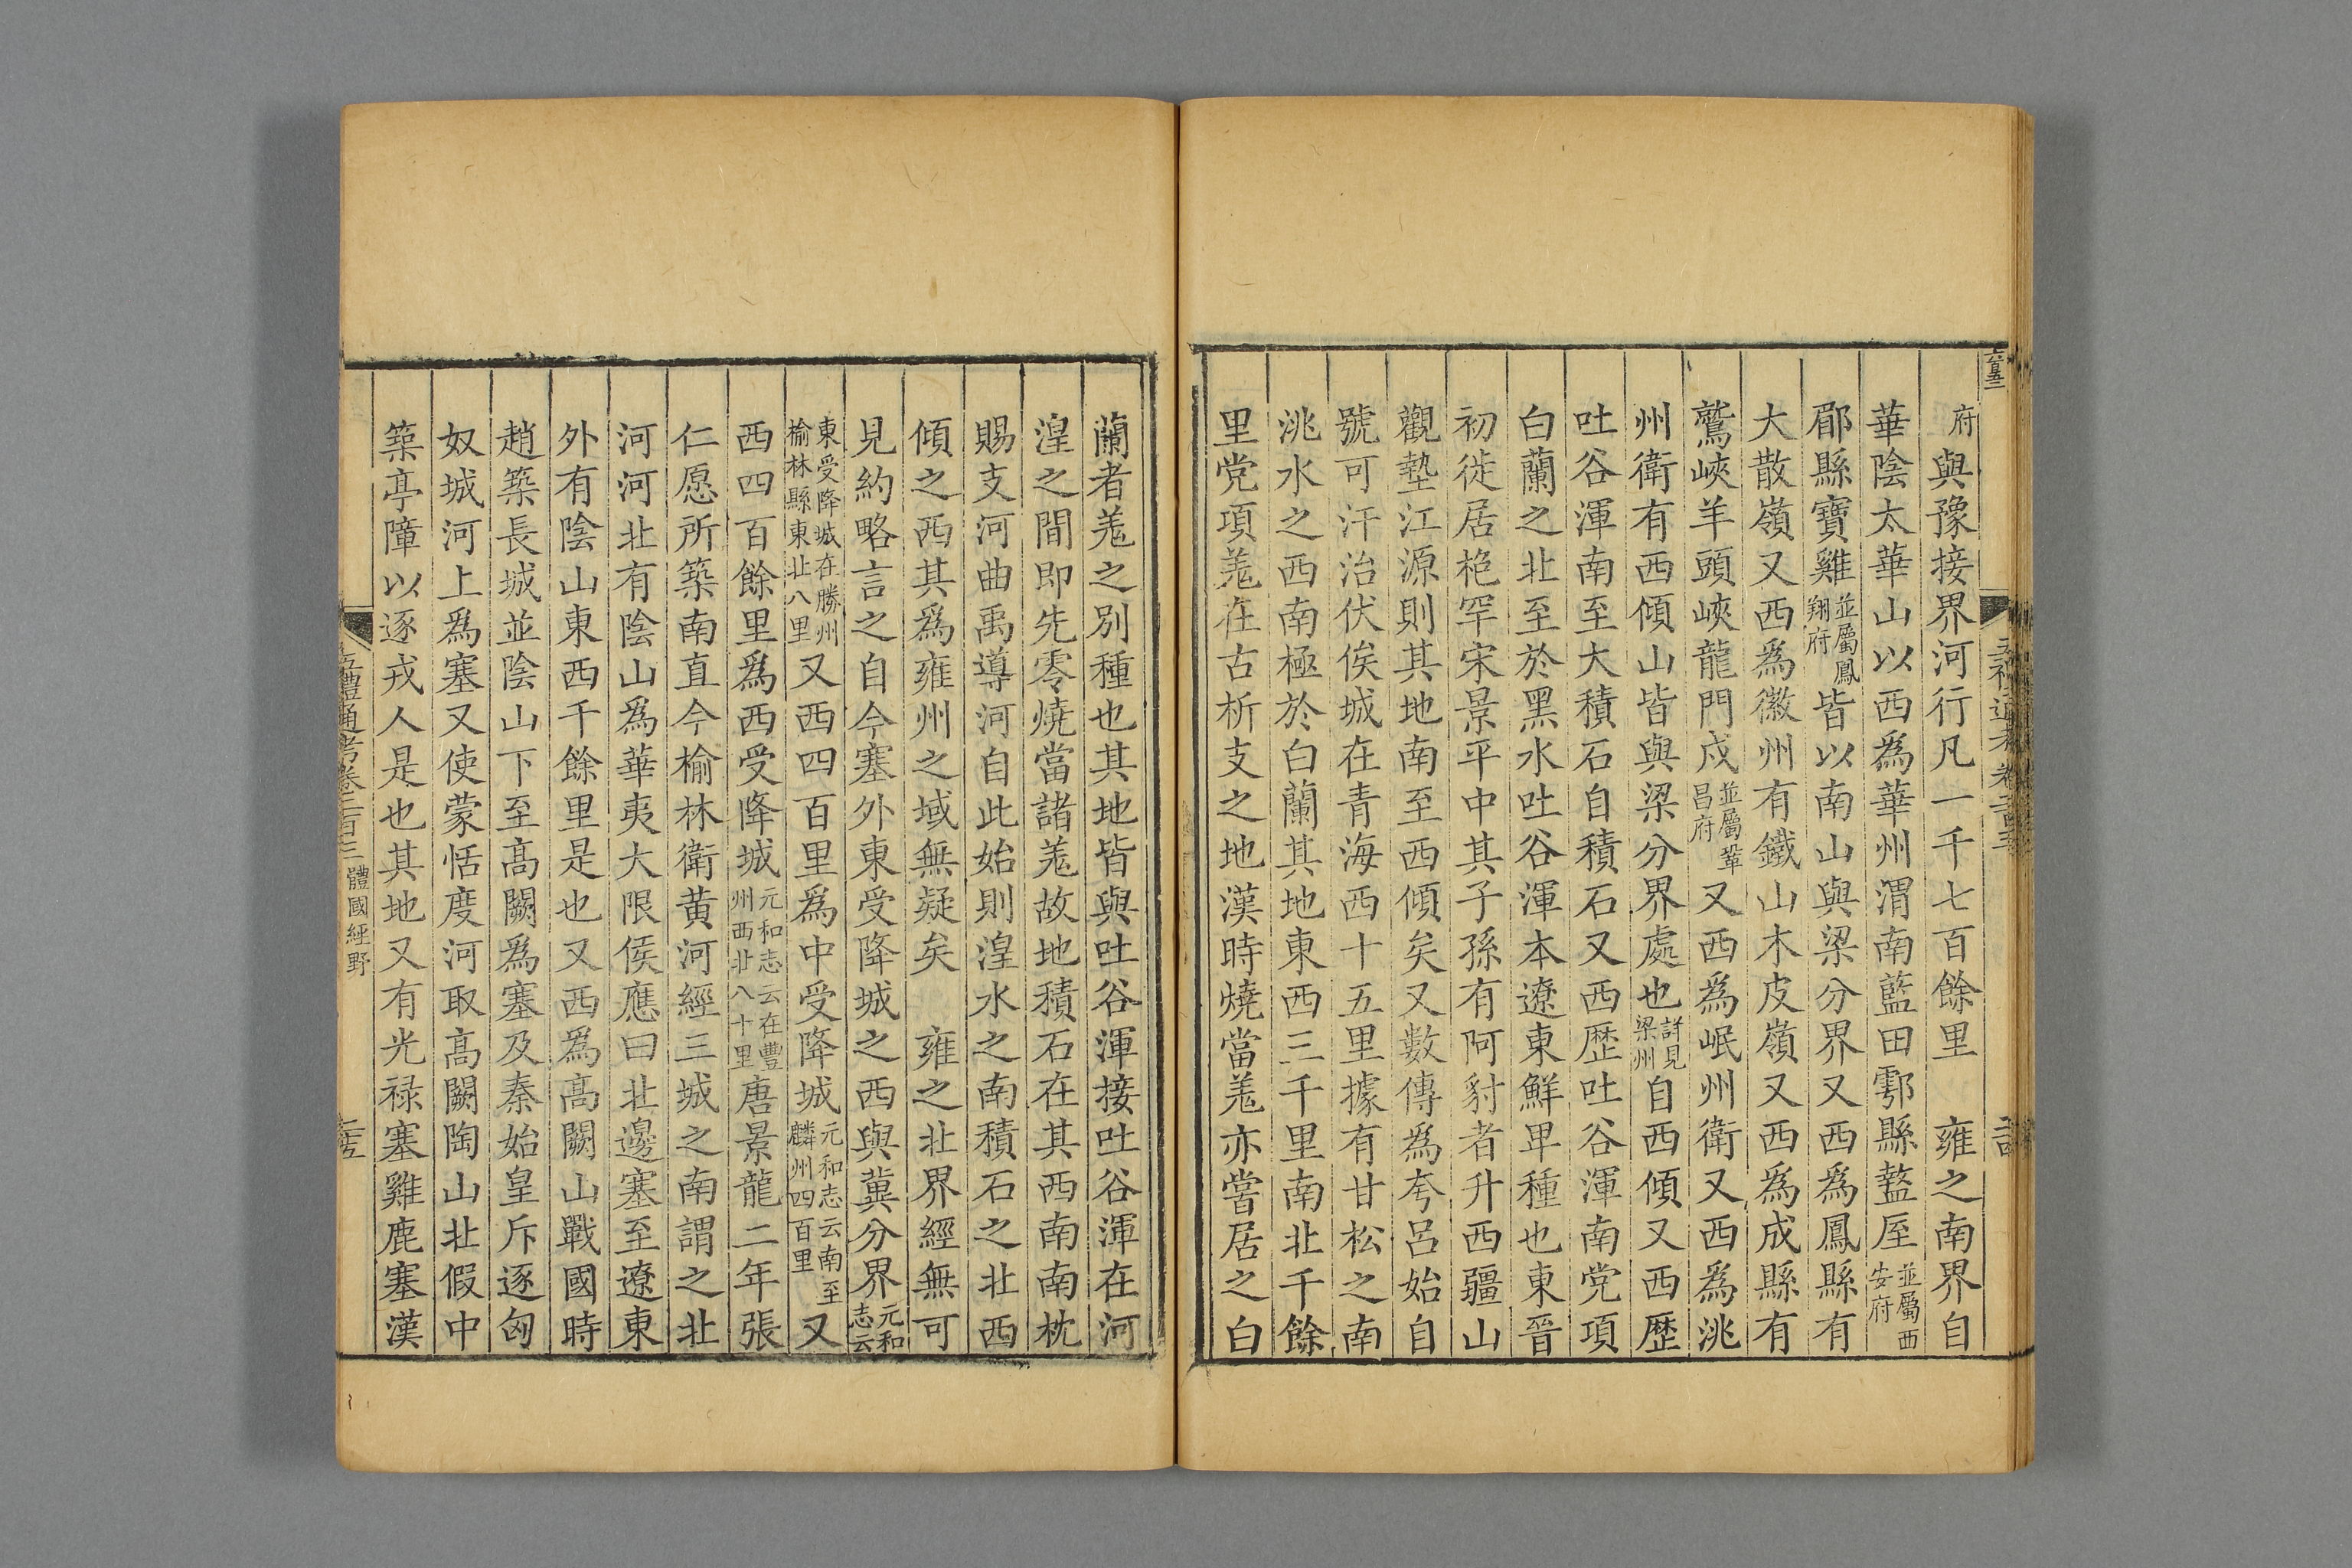 府與豫接界河行凡一千七百餘里　雍之南界自
華陰太華山以西爲華州渭南藍田鄠縣盩厔並屬西安府
郿縣寶雞並屬鳳翔府皆以南山與梁分界又西爲鳳縣有
大散嶺又西爲徽州有鐵山木皮嶺又西爲成縣有
鷲峽羊頭峽龍門戍並屬鞏昌府又西爲岷州衛又西爲洮
州衛有西傾山皆與梁分界處也詳見梁州自西傾又西歷
吐谷渾南至大積石自積石又西歷吐谷渾南党項
白蘭之北至於黑水吐谷渾本遼東鮮卑種也東晉
初徙居枹罕宋景平中其子孫有阿豺者升西疆山
觀墊江源則其地南至西傾矣又數傳爲夸呂始自
號可汗治伏俟城在青海西十五里據有甘松之南
洮水之西南極於白蘭其地東西三千里南北千餘
里党項羌在古析支之地漢時燒當羌亦嘗居之白
蘭者羌之別種也其地皆與吐谷渾接吐谷渾在河
湟之間即先零燒當諸羌故地積石在其西南南枕
賜支河曲禹導河自此始則湟水之南積石之北西
傾之西其爲雍州之域無疑矣　雍之北界經無可
見約略言之自今塞外東受降城之西與冀分界元和志云
東受降城在勝州榆林縣東北八里又西四百里爲中受降城元和志云南至麟州四百里又
西四百餘里爲西受降城元和志云在豐州西北八十里唐景龍二年張
仁愿所築南直今榆林衛黃河經三城之南謂之北
河河北有陰山爲華夷大限侯應曰北邊塞至遼東
外有陰山東西千餘里是也又西爲高闕山戰國時
趙築長城並陰山下至高闕爲塞及秦始皇斥逐匈
奴城河上爲塞又使蒙恬度河取高闕陶山北假中
築亭障以逐戎人是也其地又有光祿塞雞鹿塞漢
五禮通考卷二百三 體國經野